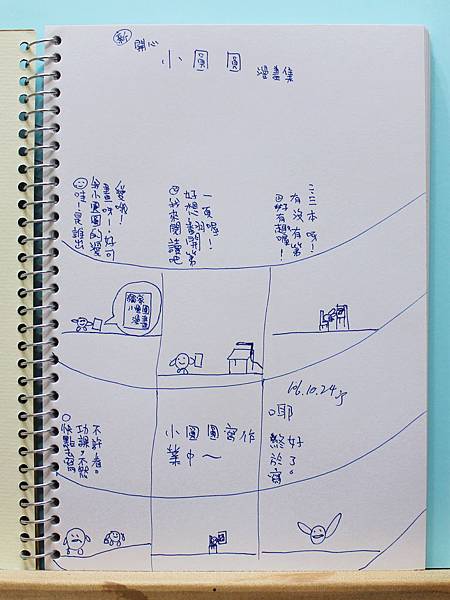 新
開心
小圓圓
漫畫集
哇！是誰出
小圓圓的漫
畫呀！好可
愛哦！
我來閱讀吧
好想翻開第
一頁喔！
好有趣喔！
有沒有第
二三本呀！
獨家
小圓圓
漫畫
106.10.24
快點去寫
功課，不然
不許看。
小圓圓寫作
業中～
耶
終於寫
好了。